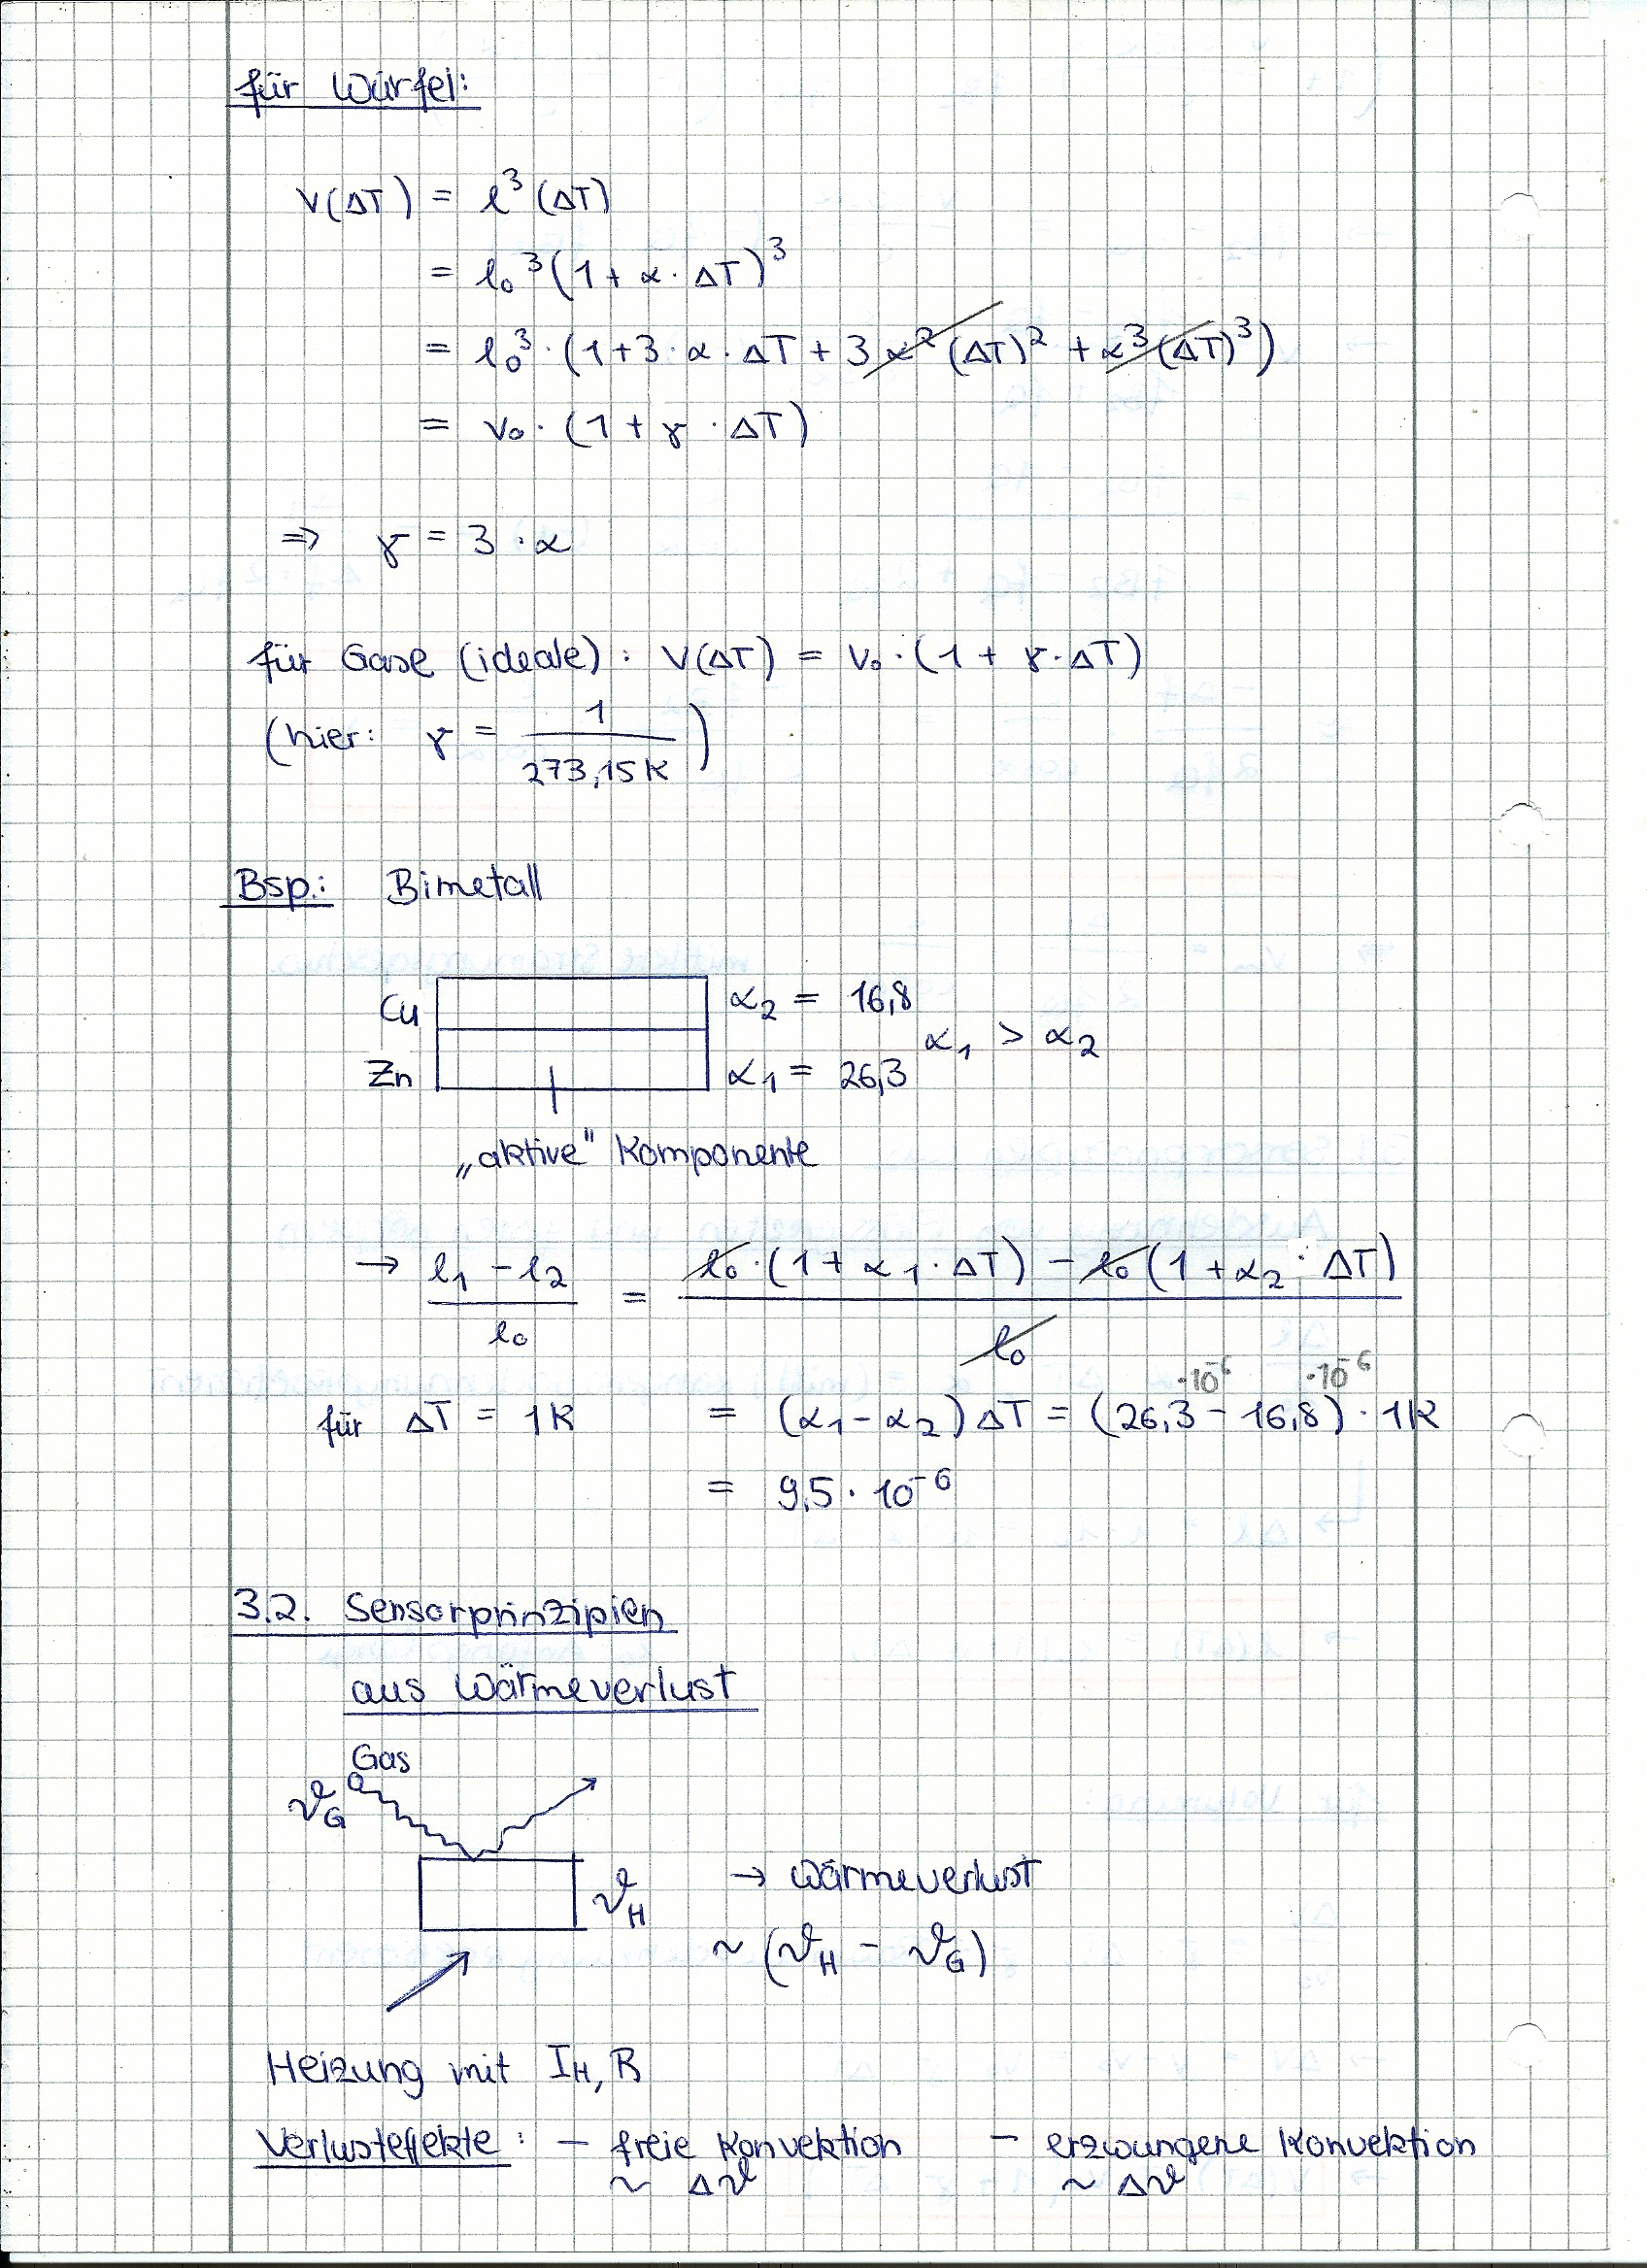 für Würfel:
V(ΔT) = l³(ΔT)
= l₀³(1 + α · ΔT)³
= l₀³ · (1 + 3 · α · ΔT + 3 α² (ΔT)² + α³ (ΔT)³)
= V₀ · (1 + γ · ΔT)
⇒ γ = 3 · α
für Gase (ideale) : V(ΔT) = V₀ · (1 + γ · ΔT)
(hier: γ = 1 / 273,15 K)
Bsp.: Bimetall
Cu α₂ = 16,8
α₁ > α₂
Zn α₁ = 26,3
„aktive" Komponente
→ (l₁ - l₂) / l₀ = (l₀ · (1 + α₁ · ΔT) - l₀ (1 + α₂ · ΔT)) / l₀
·10⁻⁶ ·10⁻⁶
für ΔT = 1K = (α₁ - α₂) ΔT = (26,3 - 16,8) · 1K
= 9,5 · 10⁻⁶
3.2. Sensorprinzipien
aus Wärmeverlust
Gas
ϑG
ϑH → Wärmeverlust
~ (ϑH - ϑG)
Heizung mit IH, R
Verlusteffekte : - freie Konvektion - erzwungene Konvektion
~ Δϑ ~ Δϑ